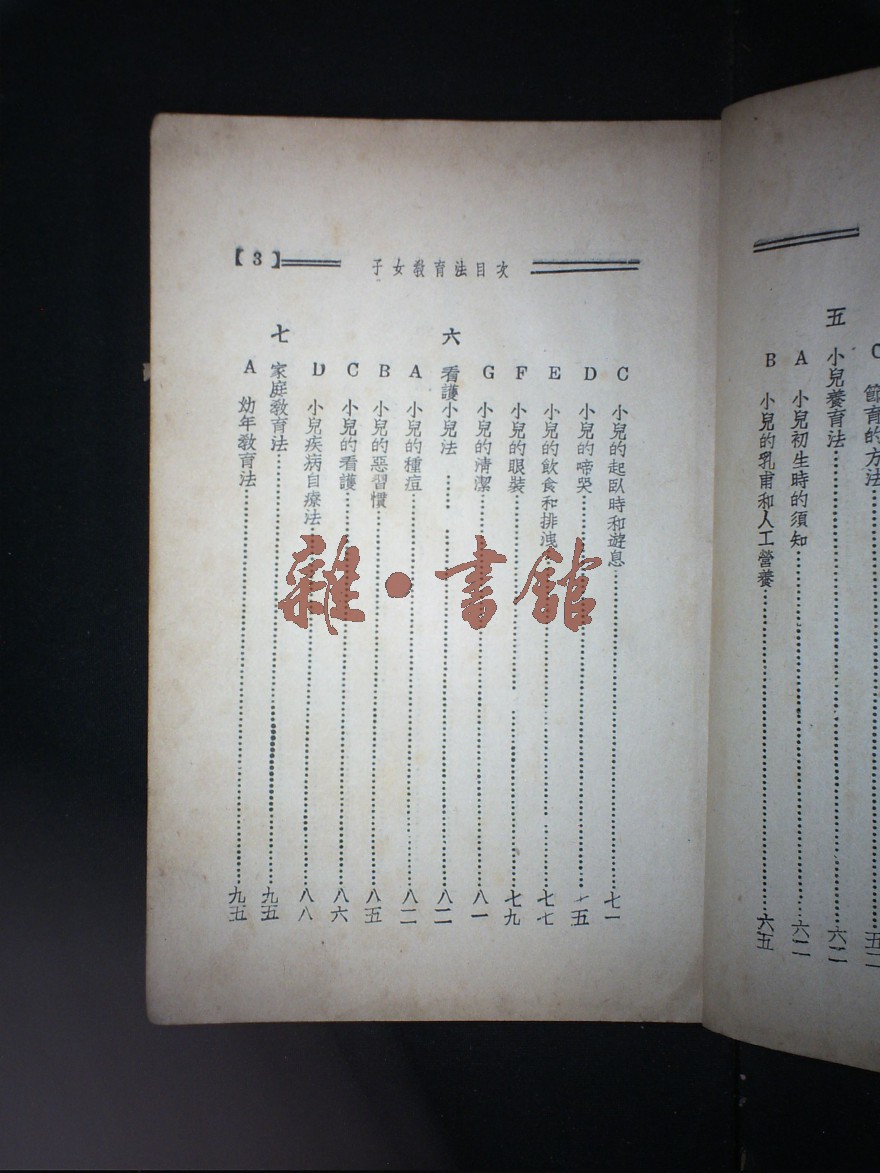 C 節育的方法
五 小兒養育法……六二
A 小兒初生時的須知……六二
B 小兒的乳甫和人工營養……六五
【3】 子女教育法目次
C 小兒的起臥時和遊息……七一
D 小兒的啼哭……七五
E 小兒的飲食和排洩……七七
F 小兒的眼裝……七九
G 小兒的清潔……八一
六 看護小兒法……八二
A 小兒的種痘……八二
B 小兒的惡習慣……八五
C 小兒的看護……八六
D 小兒疾病自療法……八八
七 家庭教育法……九五
A 幼年教育法……九五
雜·書館